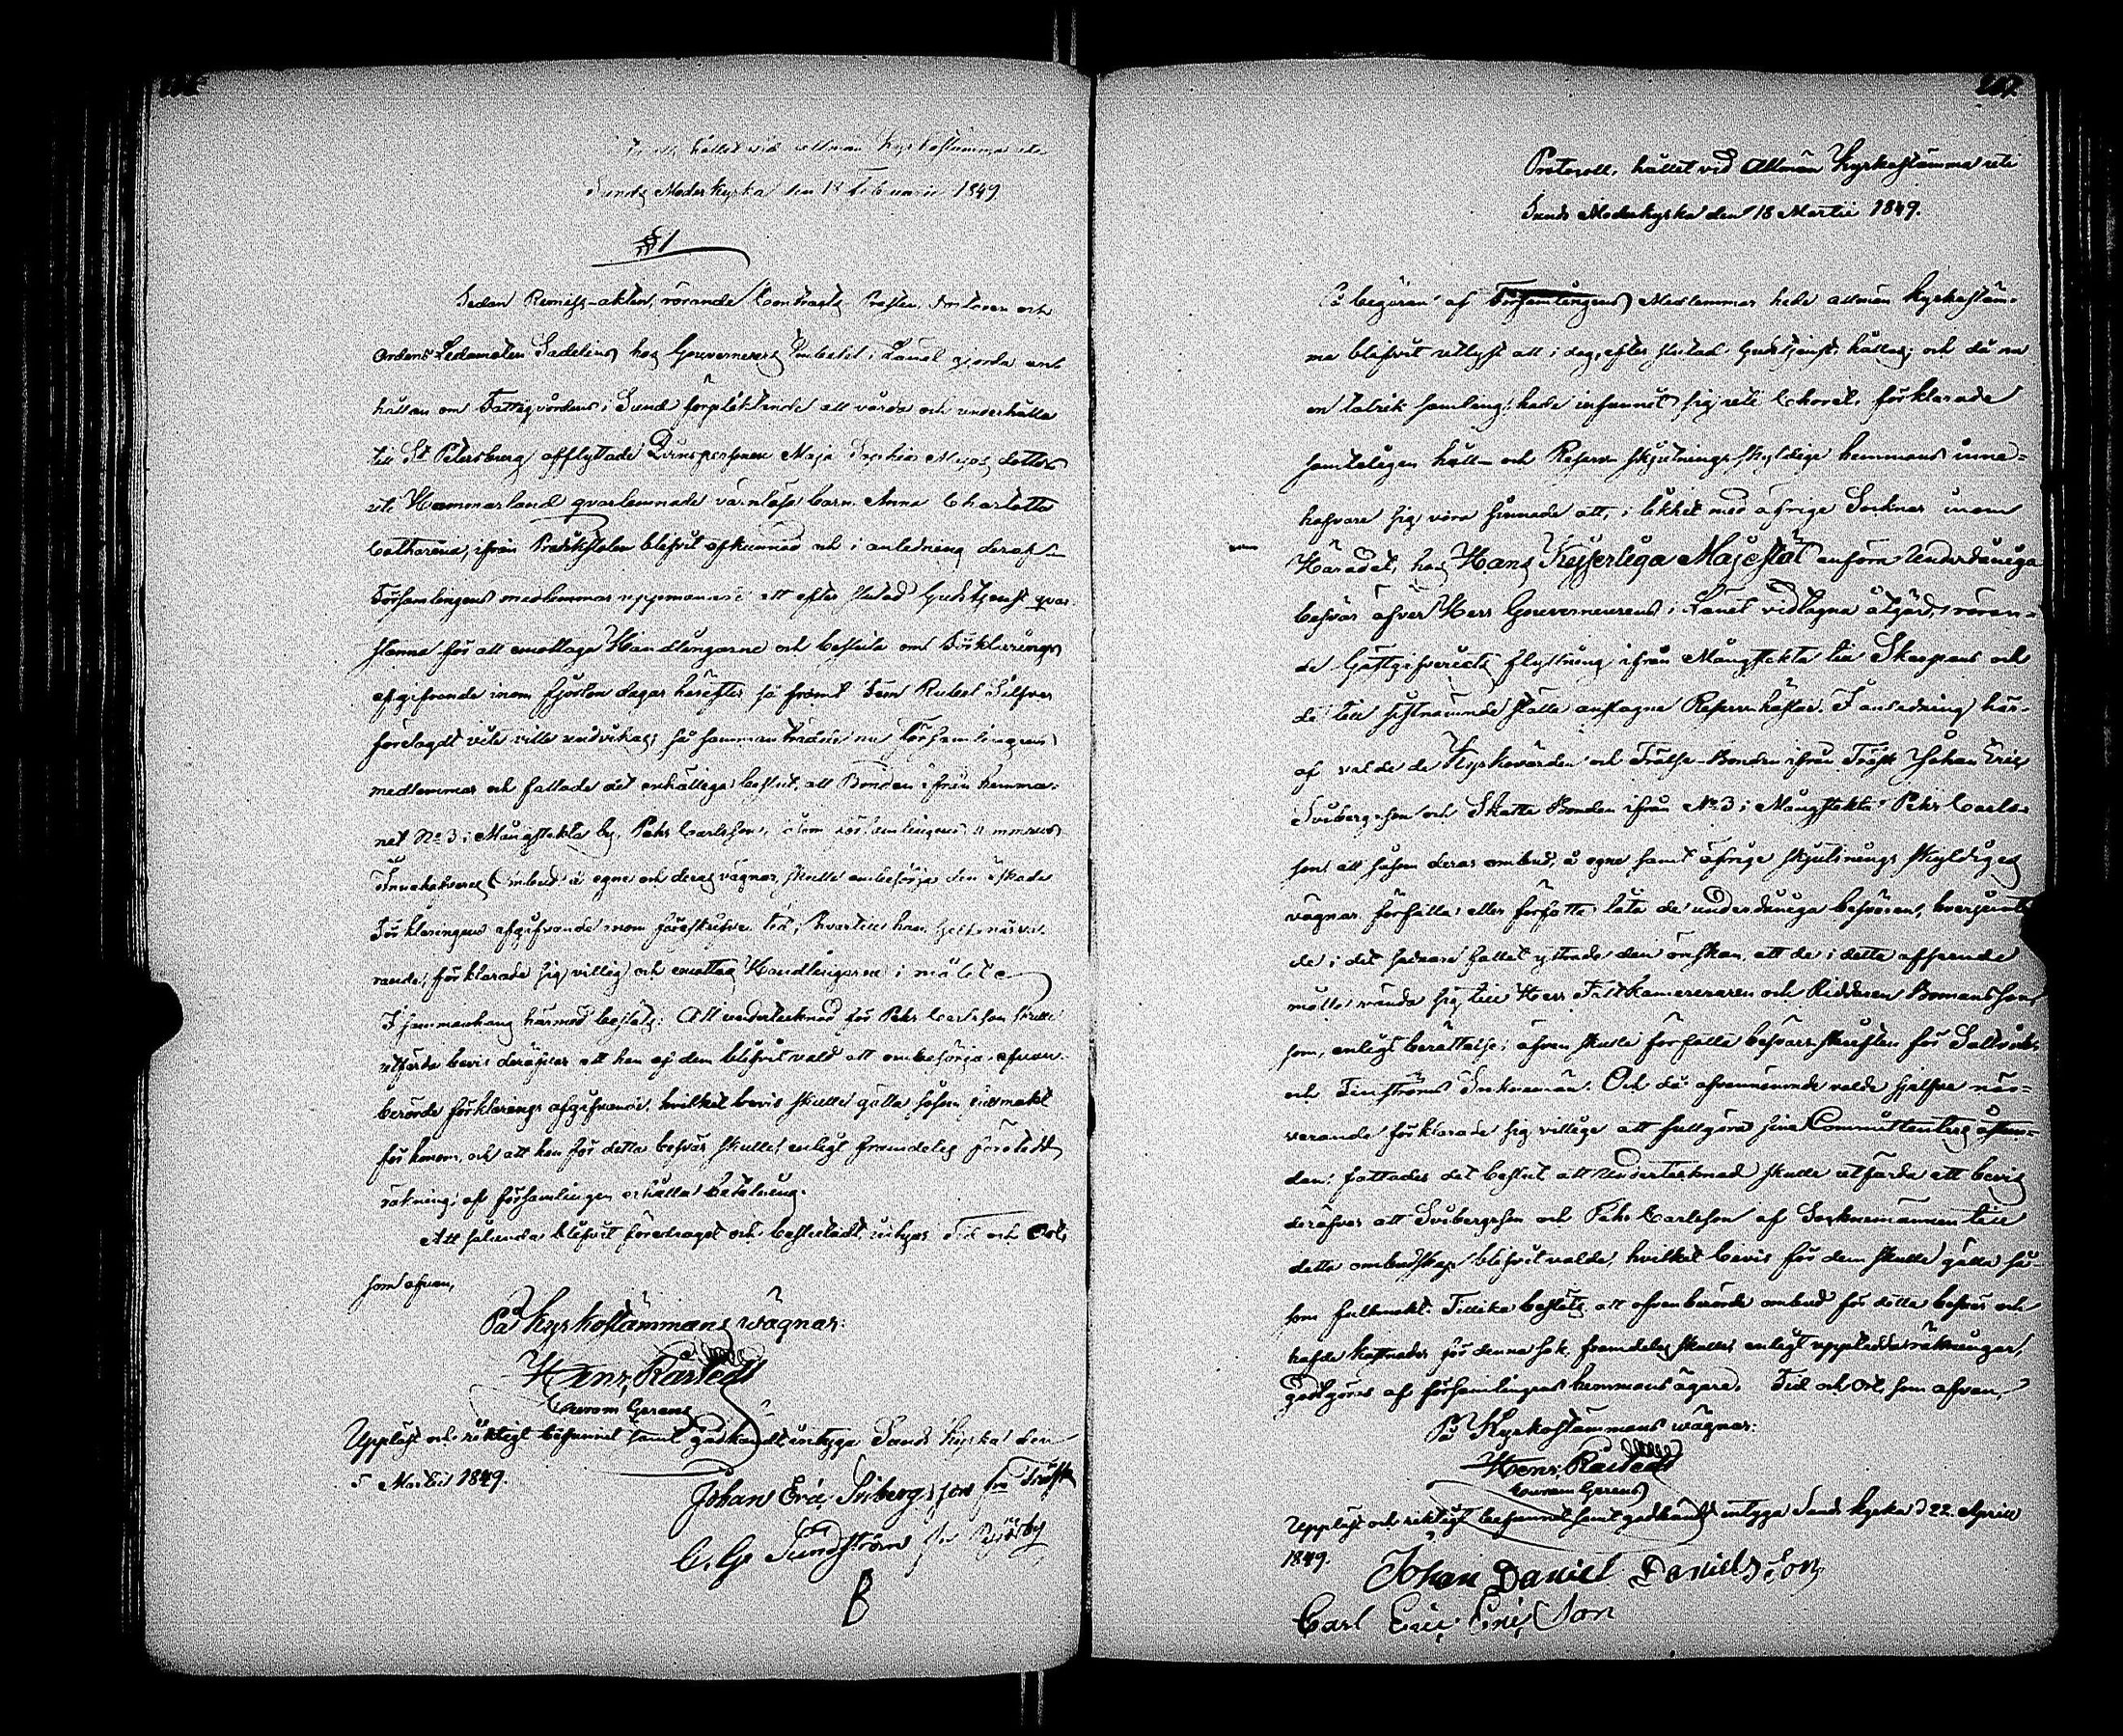 hållet vid allmän Kyrkostämma uti
Sunds Moderkyrka den 18 Februarii 1849
§ 1
Sedan Remiss-akten, rörande Contracts Prosten, Doctoren och
Ordens Ledamoten Sadelins hos Gouverneurs Embetet i Länet gjorda an-
hållan om Fattigvårdens i Sund förpliktande att vårda och underhålla
till St Petersburg afflyttade Qvinspersonen Maja Sophia Matsdotters
uti Hammarland qvarlemnade värnlösa barn Anna Charlotta
Catharina, ifrån Predikstolen blifvit afkunnad och i anledning deraf
Församlingens medlemmar uppmanade att efter slutad Gudstjenst qvar
stanna för att emottaga Handlingarne och besluta om Förklarings
afgifvande inom fjorton dagar härefter så framt Fem Rubel Silfver
förelagdt vite ville undvikas; så sammanträdde nu Församlingens
medlemmar och fattade det enhälliga beslut, att Bonden ifrån Hemma-
net No 3 i Mångstekta by, Pehr Carlsson, såsom Församlingens Hemmans
Innehafvares Ombud å egne och deras vägnar, skulle ombesörja den äskade
Förklaringens afgifvande inom föreskrifven tid; hvartill han, sjelf närva-
rande, förklarade sig villig och emottog Handlingarne i målet.
I sammanhang härmed beslöts: Att undertecknad för Pehr Carlsson skulle
utfärda bevis deröfver att han af dem blifvit vald att ombesörja ofvan-
berörde förklarings afgifvande, hvilket bevis skulle gälla såsom fullmakt
för honom, och att han för detta besvär skulle, enligt framdeles företedd
räkning, af församlingen erhålla betalning.
Att sålunda blifvit föredraget och beslutadt intygas Tid och Ort,
som ofvan,
På Kyrkostämmans vägnar:
Henr. Råstedt
Curam Gerens
Uppläst och riktigt befunnet samt godkändt, intyga Sunds Kyrka den
5 Martii 1849.
Johan Eric Svibergsson frå Träsk
C. G. Sundström frå Björby
B
Protocoll, hållet vid Allmän Kyrkostämma uti
Sunds Moderkyrka den 18 Martii 1849.
På begäran af Församlingens Medlemmar hade allmän Kyrkostäm-
ma blifvit utlyst att i dag, efter slutad Gudstjenst, hållas; och då nu
en talrik samling hade infunnit sig uti Choret, förklarade
samteligen håll- och Reserv skjutnings skyldige hemmans inne-
hafvare sig vara sinnade att, i likhet med öfrige Socknar inom
Häradet, hos Hans Kejserliga Majestät anföra Underdåniga
besvär öfver Herr Gouverneurens i Länet vidtagna åtgärd, röran-
de Gästgifveriets flyttning ifrån Mångstekta till Skarpans och
de till sistnämnde ställe anslagne Reservhästar. I anledning här-
af valde de Kyrkovärden och Frälse-Bonden ifrån Träsk Johan Eric
Svibergsson och Skatte Bonden ifrån No 3 i Mångstekta Pehr Carls-
son att såsom deras ombud, å egne samt öfrige skjutsnings skyldiges
vägnar författa eller författa låta de underdåniga besvären, hvarjemte
de i det sednare fallet yttrade den önskan, att de i detta afseende
måtte vända sig till Herr Fältkamereraren och Riddaren Bomansson
som, enligt berättelse, äfven skulle författa besvärsskriften för Saltviks
och Finströms Socknemän. Och då ofvannämnde valde sjelfve när-
varande förklarade sig villige att fullgöra sina Committenters åstun-
dan, fattades det beslut att Undertecknad skulle utfärda ett bevis
deröfver att Svibergsson och Pehr Carlsson af Socknemännen till
detta ombudskap blifvit valde, hvilket bevis för dem skulle gälla så-
som fullmakt. Tillika beslöts att ofvanberörde ombud för detta besvär och
hafde kostnader för denna sak, framdeles skulle, enligt uppstädda räkningar,
godtgöras af församlingens hemmans ägare. Tid och Ort, som ofvan,
På Kyrkostämmans vägnar:
Henr. Råstedt
Curam Gerens
Uppläst och riktigt befunnet samt godkändt, intyga Sunds kyrka d 22 Aprill
1849.
Johan Daniel Danielsson
Carl Eric Ericsson